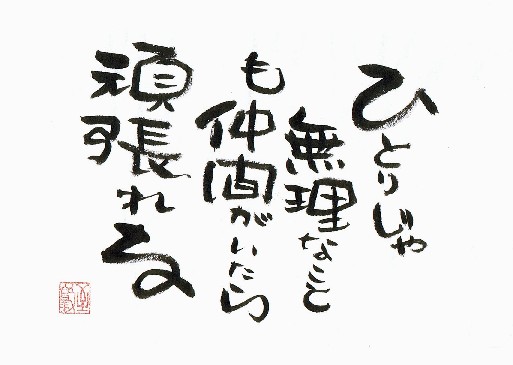 ひとりじゃ
無理なこと
も仲間がいたら
頑張れるな